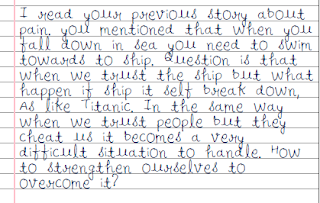 I read your previous story about
pain. you mentioned that when you
fall down in sea you need to swim
towards to ship. Question is that
when we trust the ship but what
happen if ship it self break down,
As like Titanic. In the same way
when we trust people but they
cheat us it becomes a very
difficult situation to handle. How
to strengthen ourselves to
overcome it?